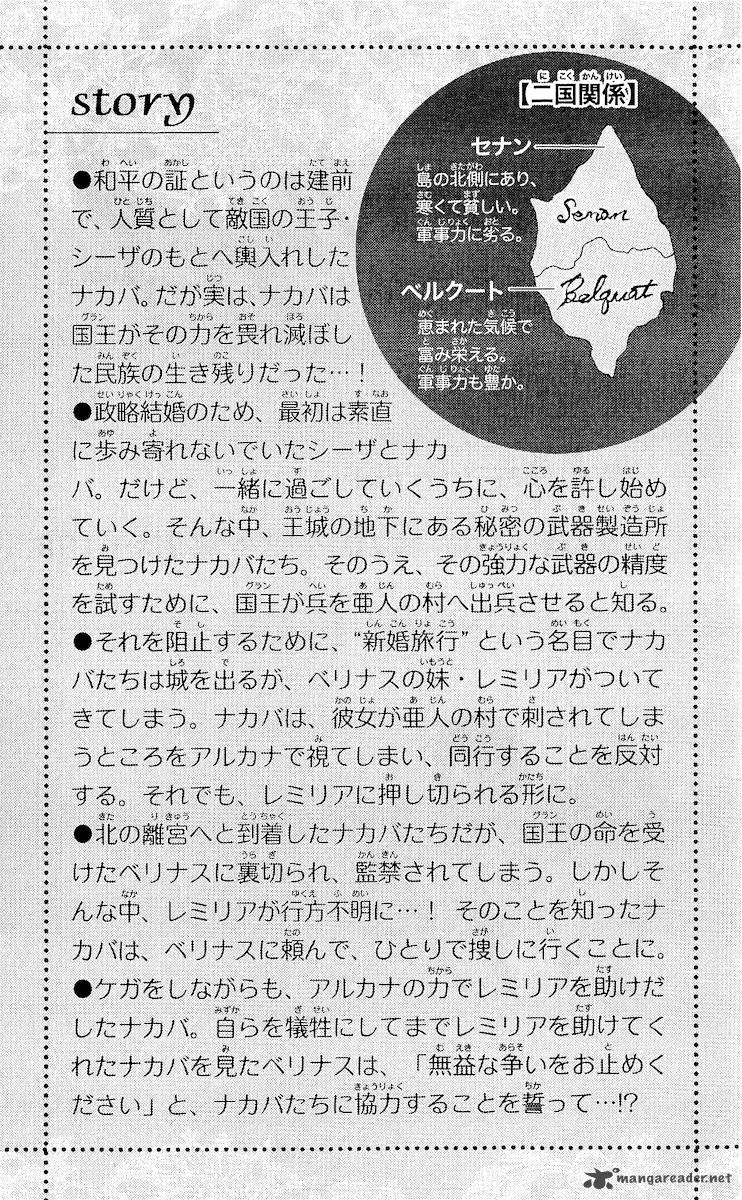 story
【二国関係】
セナン
島の北側にあり、
寒くて貧しい。
軍事力に劣る。
Senan
ベルクート
恵まれた気候で
富み栄える。
軍事力も豊か。
Belquat
●和平の証というのは建前
で、人質として敵国の王子・
シーザのもとへ輿入れした
ナカバ。だが実は、ナカバは
国王がその力を畏れ滅ぼし
た民族の生き残りだった…！
●政略結婚のため、最初は素直
に歩み寄れないでいたシーザとナカ
バ。だけど、一緒に過ごしていくうちに、心を許し始め
ていく。そんな中、王城の地下にある秘密の武器製造所
を見つけたナカバたち。そのうえ、その強力な武器の精度
を試すために、国王が兵を亜人の村へ出兵させると知る。
●それを阻止するために、“新婚旅行”という名目でナカ
バたちは城を出るが、ベリナスの妹・レミリアがついて
きてしまう。ナカバは、彼女が亜人の村で刺されてしま
うところをアルカナで視てしまい、同行することを反対
する。それでも、レミリアに押し切られる形に。
●北の離宮へと到着したナカバたちだが、国王の命を受
けたベリナスに裏切られ、監禁されてしまう。しかしそ
んな中、レミリアが行方不明に…！ そのことを知ったナ
カバは、ベリナスに頼んで、ひとりで捜しに行くことに。
●ケガをしながらも、アルカナの力でレミリアを助けだ
したナカバ。自らを犠牲にしてまでレミリアを助けてく
れたナカバを見たベリナスは、「無益な争いをお止めく
ださい」と、ナカバたちに協力することを誓って…!?
mangareader.net